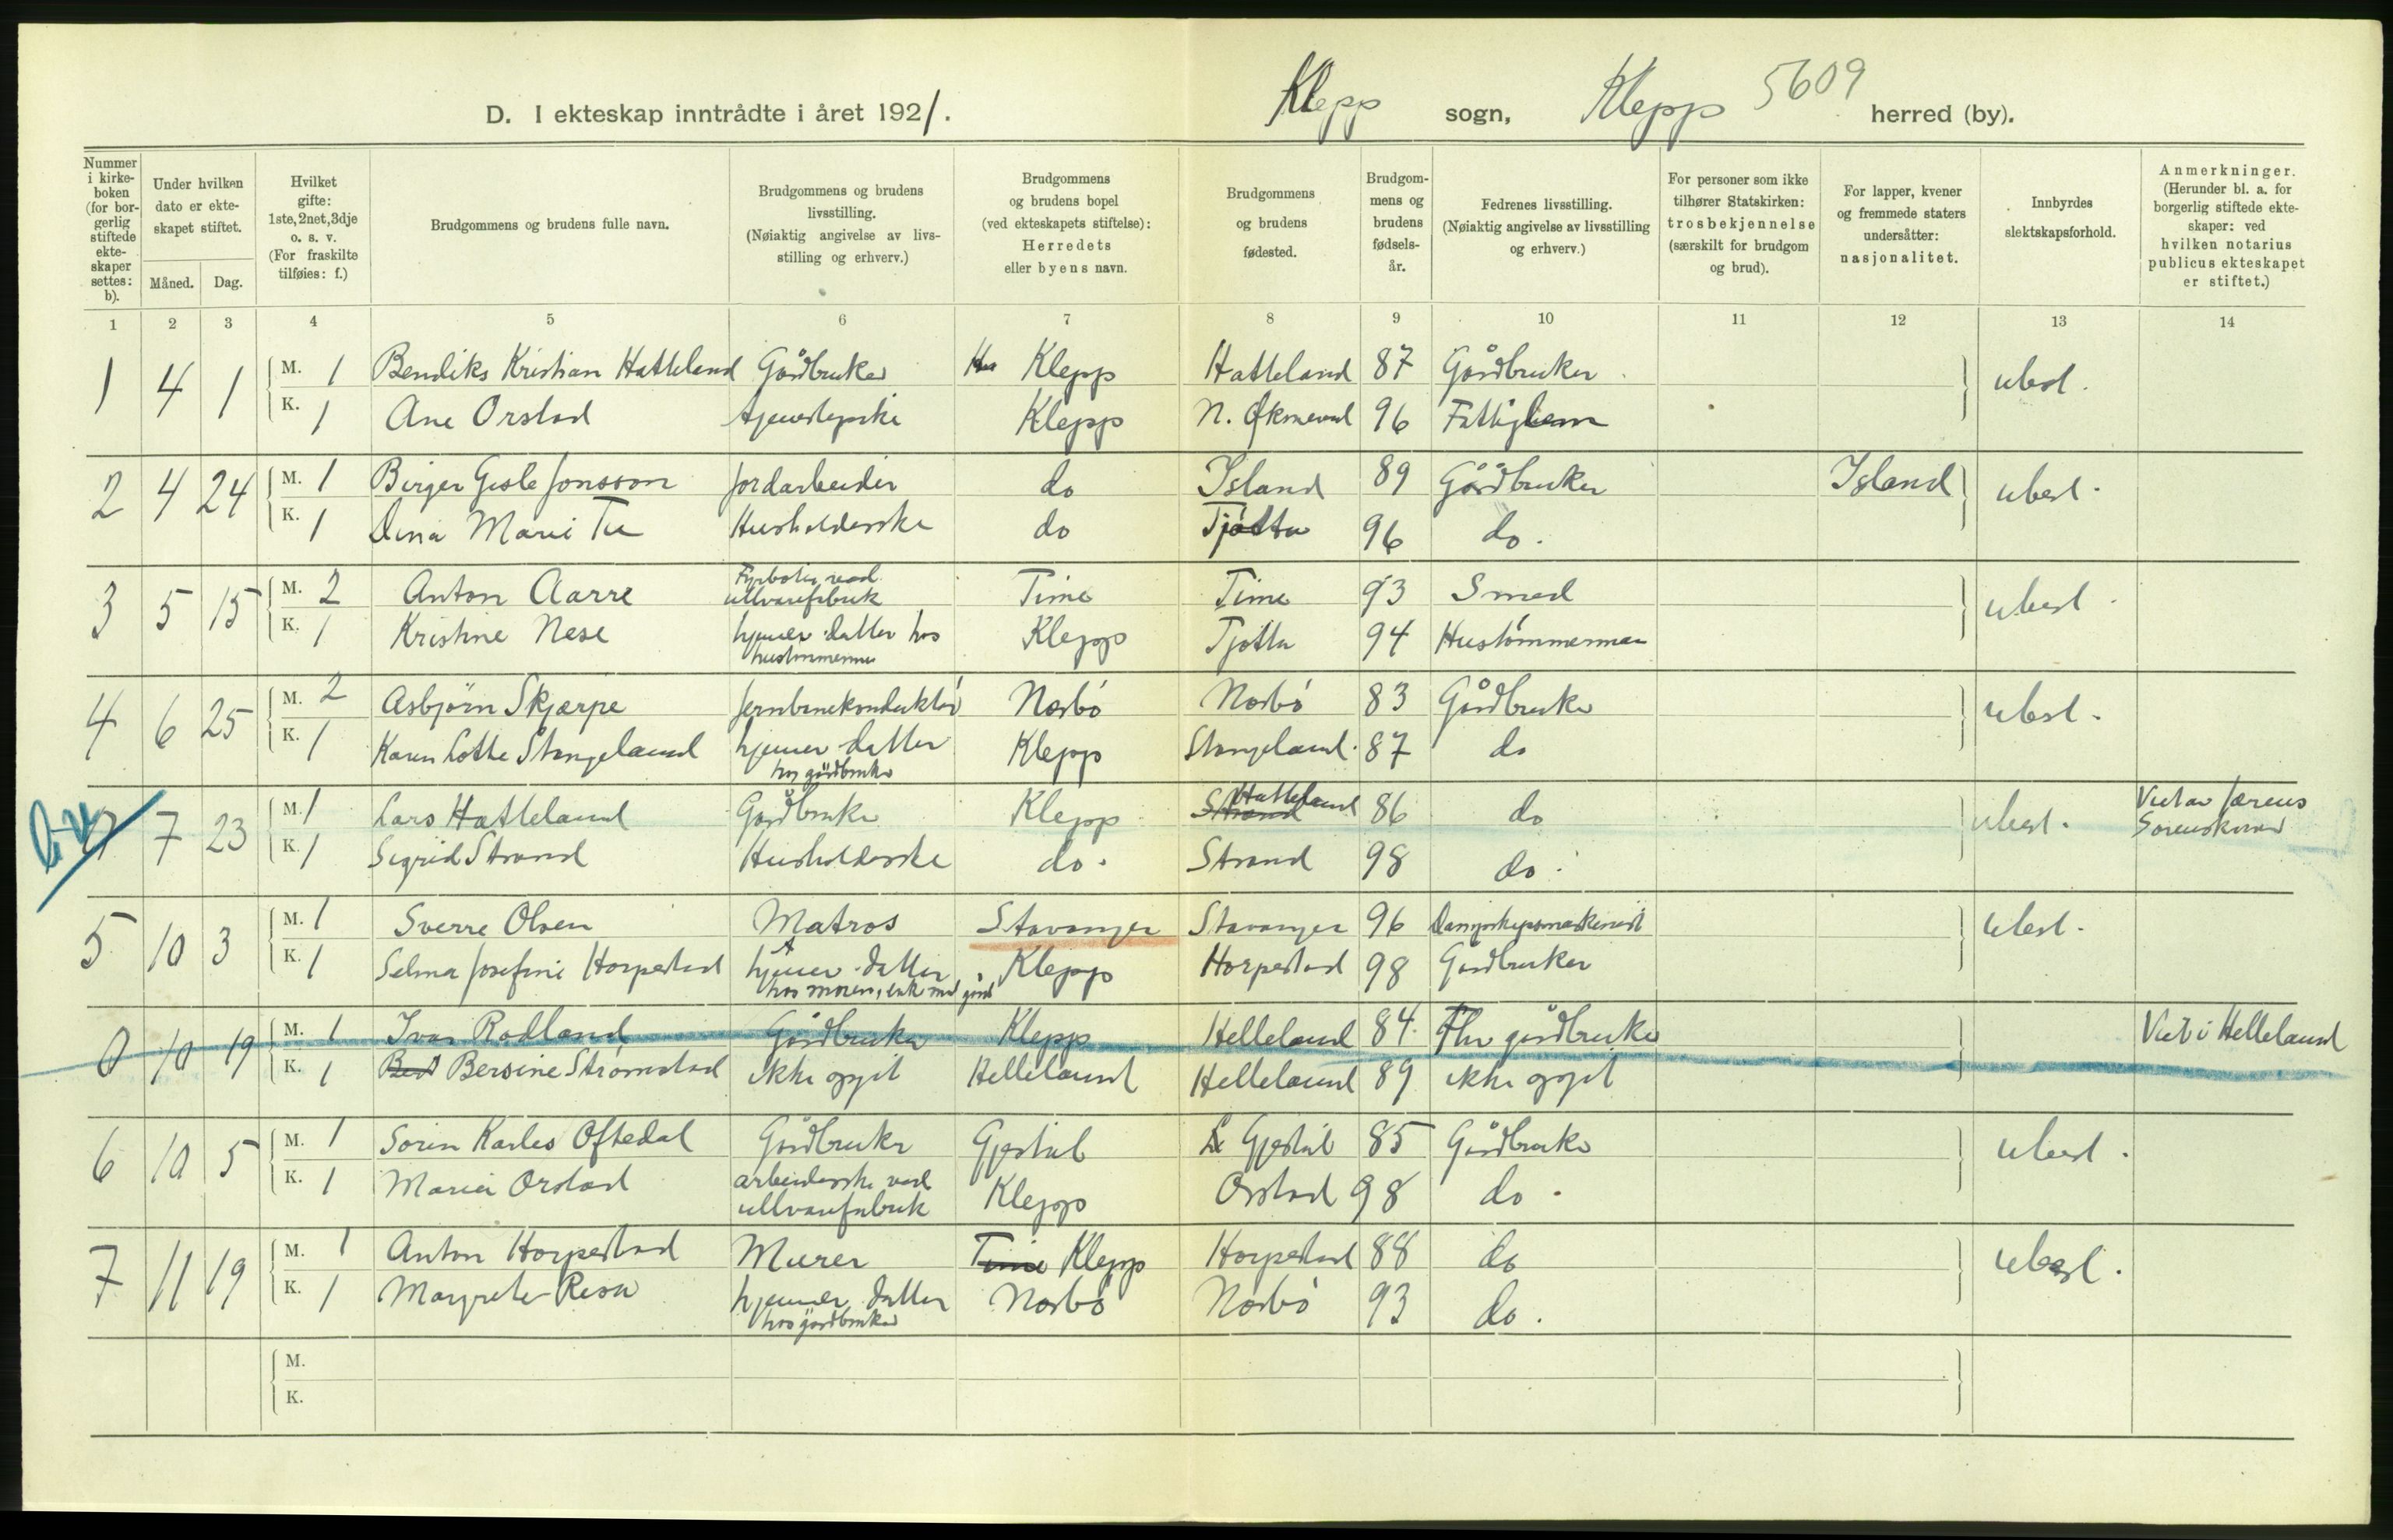 D. I ekteskap inntrådte i året 1921.
Klepp sogn, Klepp 5609 herred (by).
Nummer i kirke-boken (for bor-gerlig stiftede ekte-skaper settes: b).
Under hvilken dato er ekte-skapet stiftet.
Måned. Dag.
Hvilket gifte: 1ste, 2net, 3dje o. s. v. (For fraskilte tilføies: f.)
Brudgommens og brudens fulle navn.
Brudgommens og brudens livsstilling. (Nøiaktig angivelse av livs-stilling og erhverv.)
Brudgommens og brudens bopel (ved ekteskapets stiftelse): Herredets eller byens navn.
Brudgommens og brudens fødested.
Brudgom-mens og brudens fødsels-år.
Fedrenes livsstilling. (Nøiaktig angivelse av livsstilling og erhverv.)
For personer som ikke tilhører Statskirken: trosbekjennelse (særskilt for brudgom og brud).
For lapper, kvener og fremmede staters undersåtter: nasjonalitet.
Innbyrdes slektskapsforhold.
Anmerkninger. (Herunder bl. a. for borgerlig stiftede ekte-skaper: ved hvilken notarius publicus ekteskapet er stiftet.)
1 2 3 4 5 6 7 8 9 10 11 12 13 14
1 4 1 M. 1 Bendiks Kristian Hatteland Gårdbruker Klepp Hatteland 87 Gårdbruker ubesl.
K. 1 Ane Orstad tjenestepike Klepp N. Øksnevad 96 Fattiglem
2 4 24 M. 1 Birger Gisle Jonsson Jordarbeider do Island 89 Gårdbruker Island ubesl.
K. 1 Dina Marie Tu Husholderske do Tjøtta 96 do.
3 5 15 M. 2 Anton Aarre Fyrbøter ved ullvarefabrik Time Time 93 Smed ubesl.
K. 1 Kristine Nese hjemmev. datter hos hustømmermann Klepp Tjøtta 94 Hustømmerman
4 6 25 M. 2 Asbjörn Skjærpe Jernbanekonduktör Nærbö Nærbö 83 Gårdbruker ubesl.
K. 1 Karen Lothe Stangeland hjemmev. datter hos gårdbruker Klepp Stangeland 87 do
7 23 M. 1 Lars Hatteland Gårdbruker Klepp Strand Hatteland 86 do ubesl. Viet av Jærens Sorenskriver
K. 1 Sigrid Strand Husholderske do. Strand 98 do.
5 10 3 M. 1 Sverre Olsen Matros Stavanger Stavanger 96 Dampskipsmaskinist ubesl.
K. 1 Selma Josefine Horpestad hjemmev. datter hos moren, enke med gård Klepp Horpestad 98 Gårdbruker
0 10 19 M. 1 Ivar Rodland Gårdbruker Klepp Helleland 84 Fhv gårdbruker Viet i Helleland
K. 1 Bersine Strömstad ikke opgit Helleland Helleland 89 ikke opgit
6 10 5 M. 1 Sorin Karles Oftedal Gårdbruker Gjestal Gjestal 85 Gårdbruker ubesl.
K. 1 Maria Orstad arbeiderske ved ullvarefabrik Klepp Orstad 98 do.
7 11 19 M. 1 Anton Horpestad Murer Time Klepp Horpestad 88 do ubesl.
K. 1 Margrete Risa hjemmev. datter hos gårdbruker Nærbö Nærbö 93 do.
M.
K.